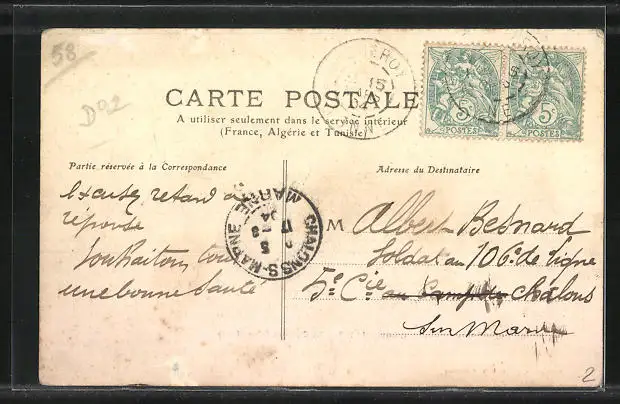 58
D02
CARTE POSTALE
A utiliser seulement dans le service intérieur
(France, Algérie et Tunisie)
Partie réservée à la Correspondance
Adresse du Destinataire
5c 5c
POSTES POSTES
Excusez retard à
réponse
Souhaitons tous
une bonne Santé
CHALONS-S-MARNE
MARNE
M Albert Besnard
Soldat au 106e de Ligne
5e Cie au Camp de Chalons
Sur Marne
2